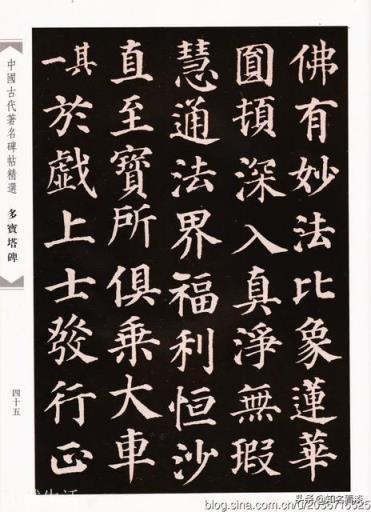 佛有妙法比象蓮華
圎頓深入真淨無瑕
慧通法界福利恒沙
直至寶所俱乘大車
其一於戯上士發行正
中國古代著名碑帖精選
多寶塔碑
四十五
头条@知名
blog.sina.com.cn/u/
生活